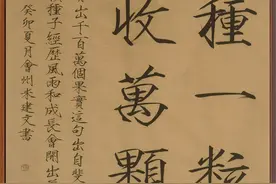 種一粒
收萬顆
出千百萬個果實這句出自斐
種子經歷風雨和成長會開出
癸卯夏月會州朱建文書